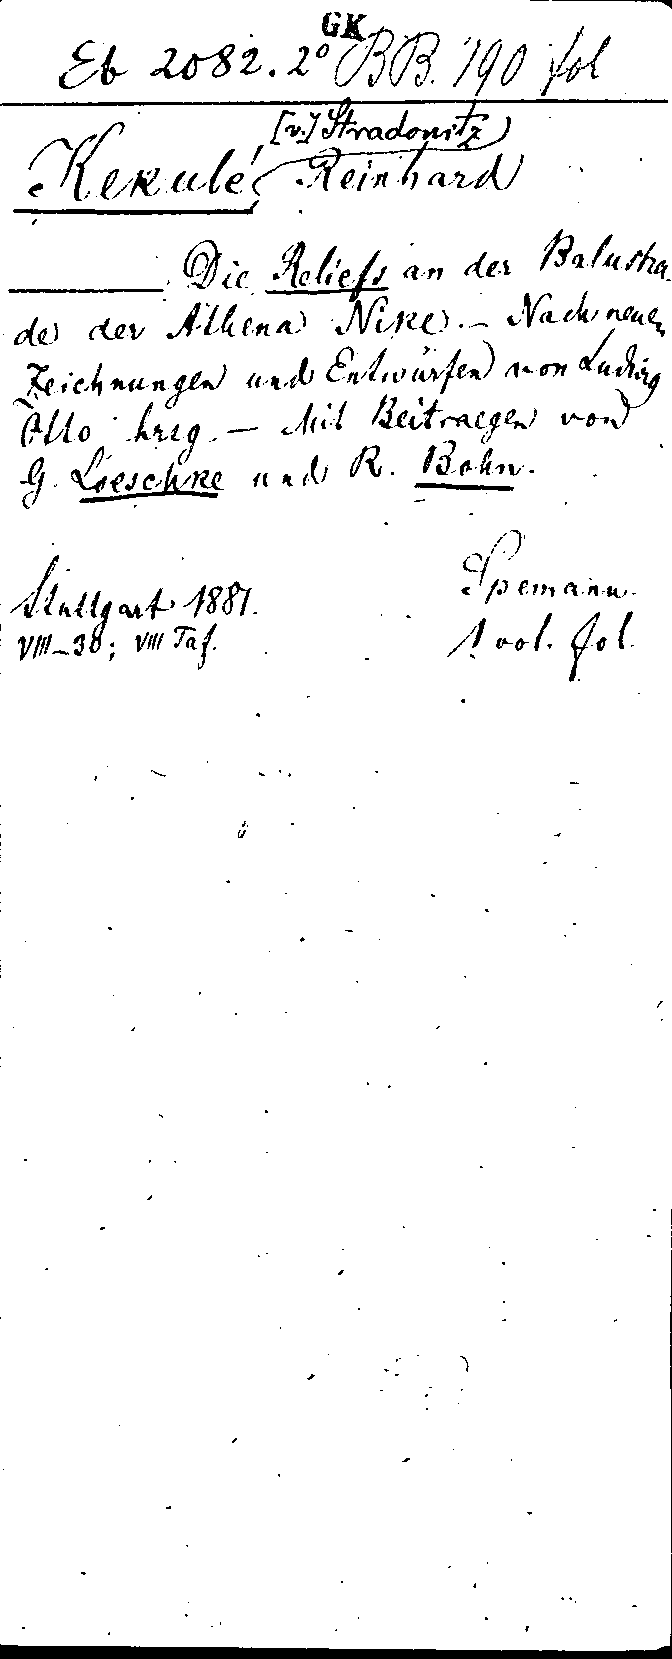 GK
Eb 2082.2° BB. 190 fol
[v.] Stradonitz
Kekulé, Reinhard
Die Reliefs an der Balustra-
de der Athena Nike. – Nach neuen
Zeichnungen und Entwürfen von Ludwig
Otto hrsg. – Mit Beitraegen von
G. Loeschke und R. Bohn.
Stuttgart 1881. Spemann.
VIII–30; VIII Taf. 1 vol. fol.